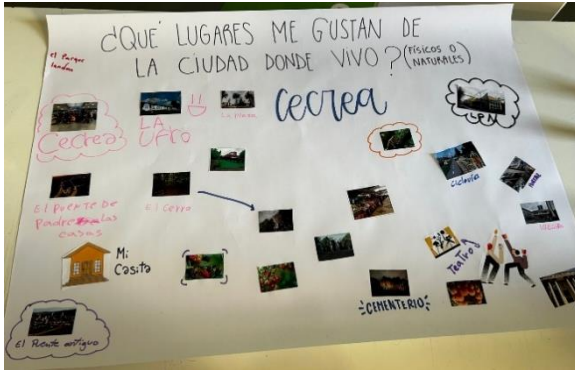 ¿QUÉ LUGARES ME GUSTAN DE
LA CIUDAD DONDE VIVO? (FÍSICOS O
NATURALES)
el Parque
Cecrea
LA
UFRO
La Plaza
cecrea
El Puente de
Padre las
casas
El Cerro
Ciclovía
Mi
Casita
Teatro
CEMENTERIO
El Puente antiguo